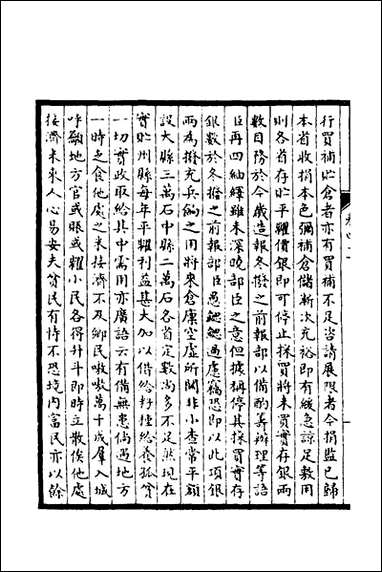 行買補貯倉者亦有買補不足咨請展限者今捐監已歸
本省收捐本色彌補倉儲漸次充裕即有緩急諒足敷用
則各省存貯平糶價銀即可停止採買將未買實存銀兩
數目務於今歲造報冬撥之前報部以備酌籌辦理等語
臣再四紬繹雖未深曉部臣之意但據稱停其採買實存
銀數於冬撥之前報部臣愚鰓鰓過慮竊恐即以此項銀
兩為撥充兵餉之用將來倉庫空虛所關非小查常平額
設大縣三萬石中縣二萬石各省定數尚多不足然現在
實貯州縣每年平糶利益甚大加以借給耔種給養孤貧
一切賣政取給其中需用亦廣語云有備無患倘遇地方
一時之食他處之米接濟不及鄉民嗷嗷萬十成羣入城
呼籲地方官或賑或糶小民各得升斗即時立散俟他處
接濟米來人心易安夫貧民有恃不恐境內富民亦以餘